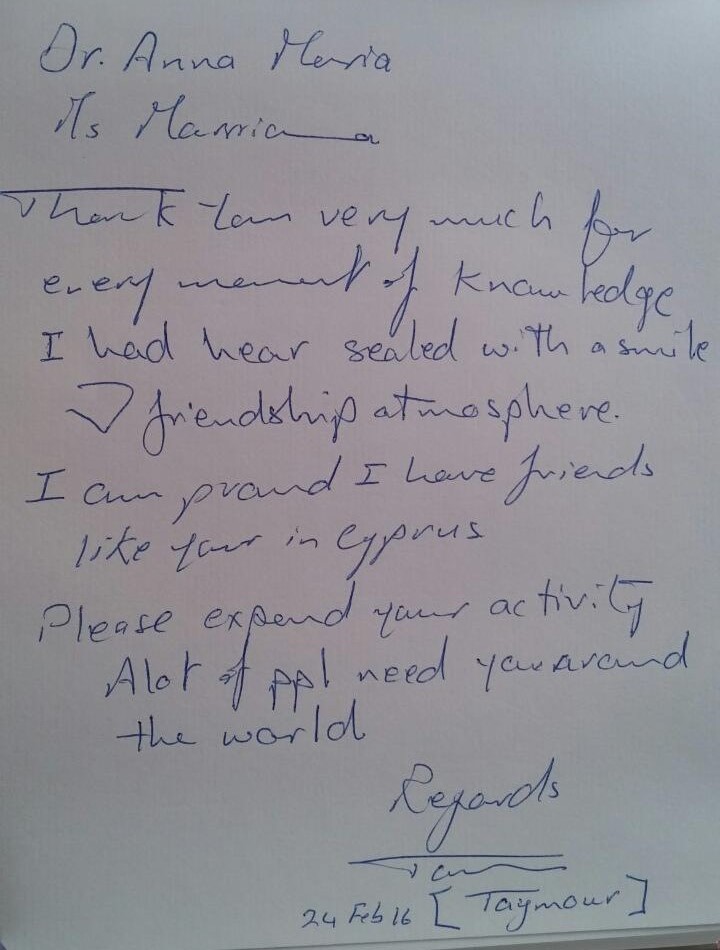 Dr. Anna Maria
Ms Marria
Thank You very much for
every moment of knowledge
I had hear sealed with a smile
friendship atmosphere.
I am proud I have friends
like your in Cyprus
Please expend your activity
Alot of ppl need you around
the world
Regards
24 Feb 16 [Taymour]